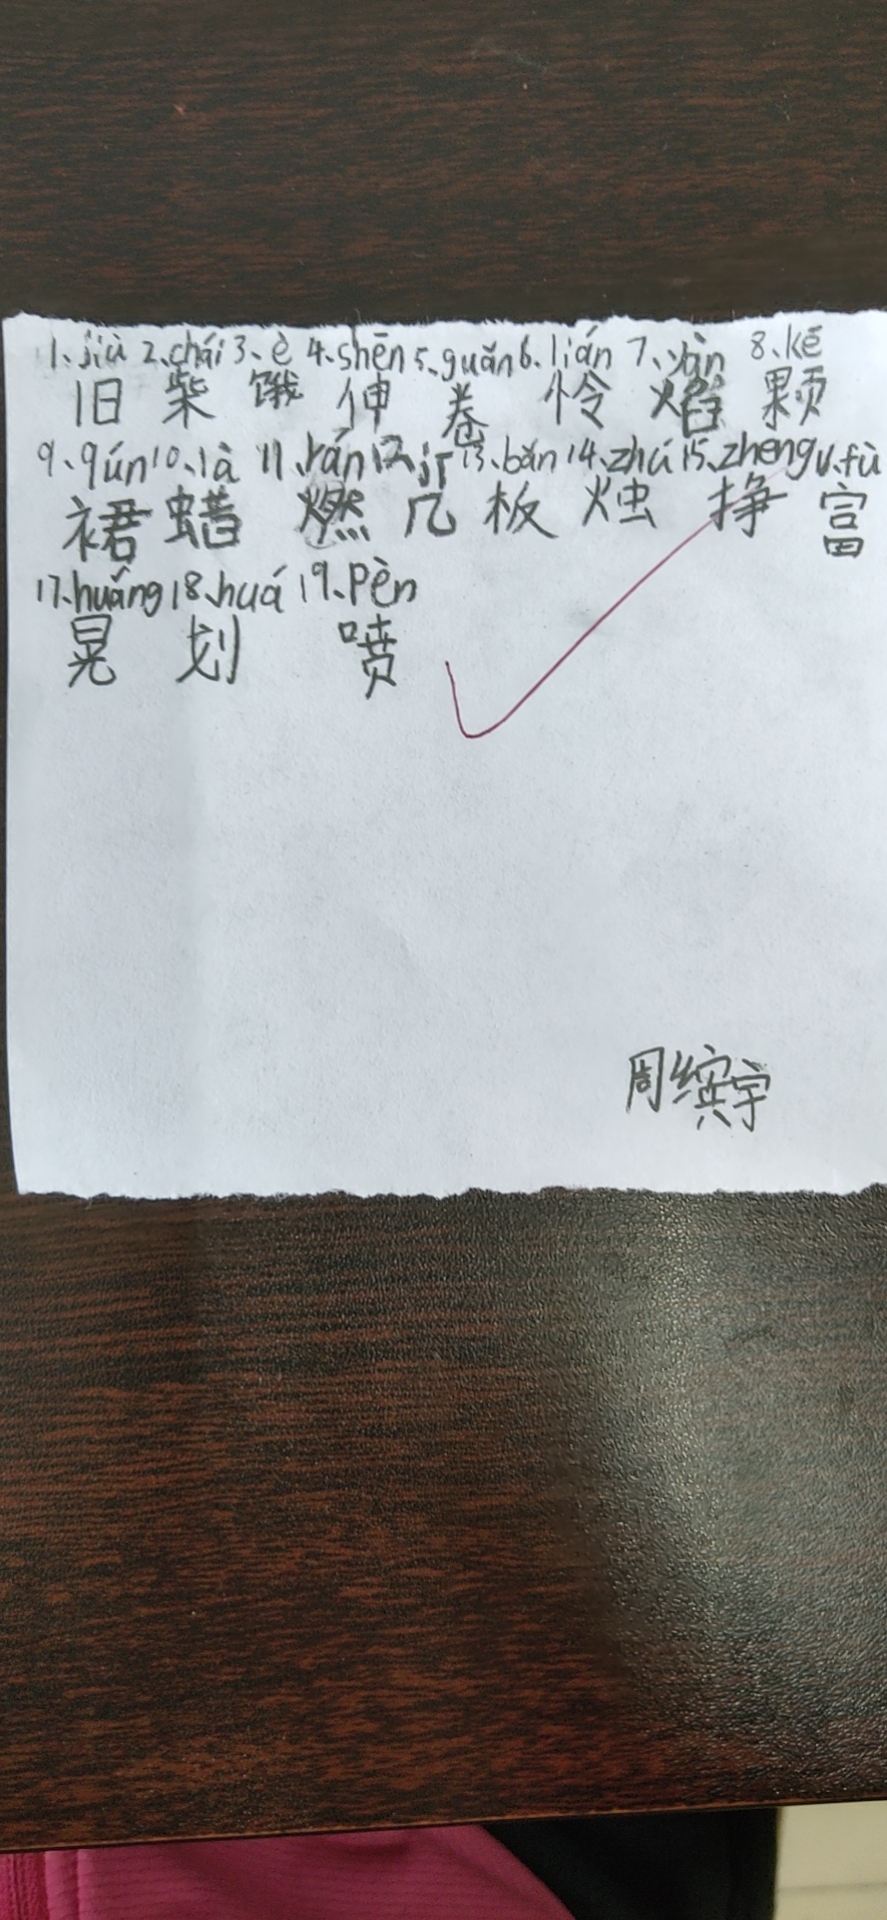 1、jiù 2、chái 3、è 4、shēn 5、guǎn 6、lián 7、yàn 8、kē
旧 柴 饿 伸 卷 怜 焰 颗
9、qún 10、là 11、rán 12、jī 13、bǎn 14、zhú 15、zheng 16、fù
裙 蜡 燃 几 板 烛 挣 富
17、huǎng 18、huá 19、pèn
晃 划 喷
周缤宇